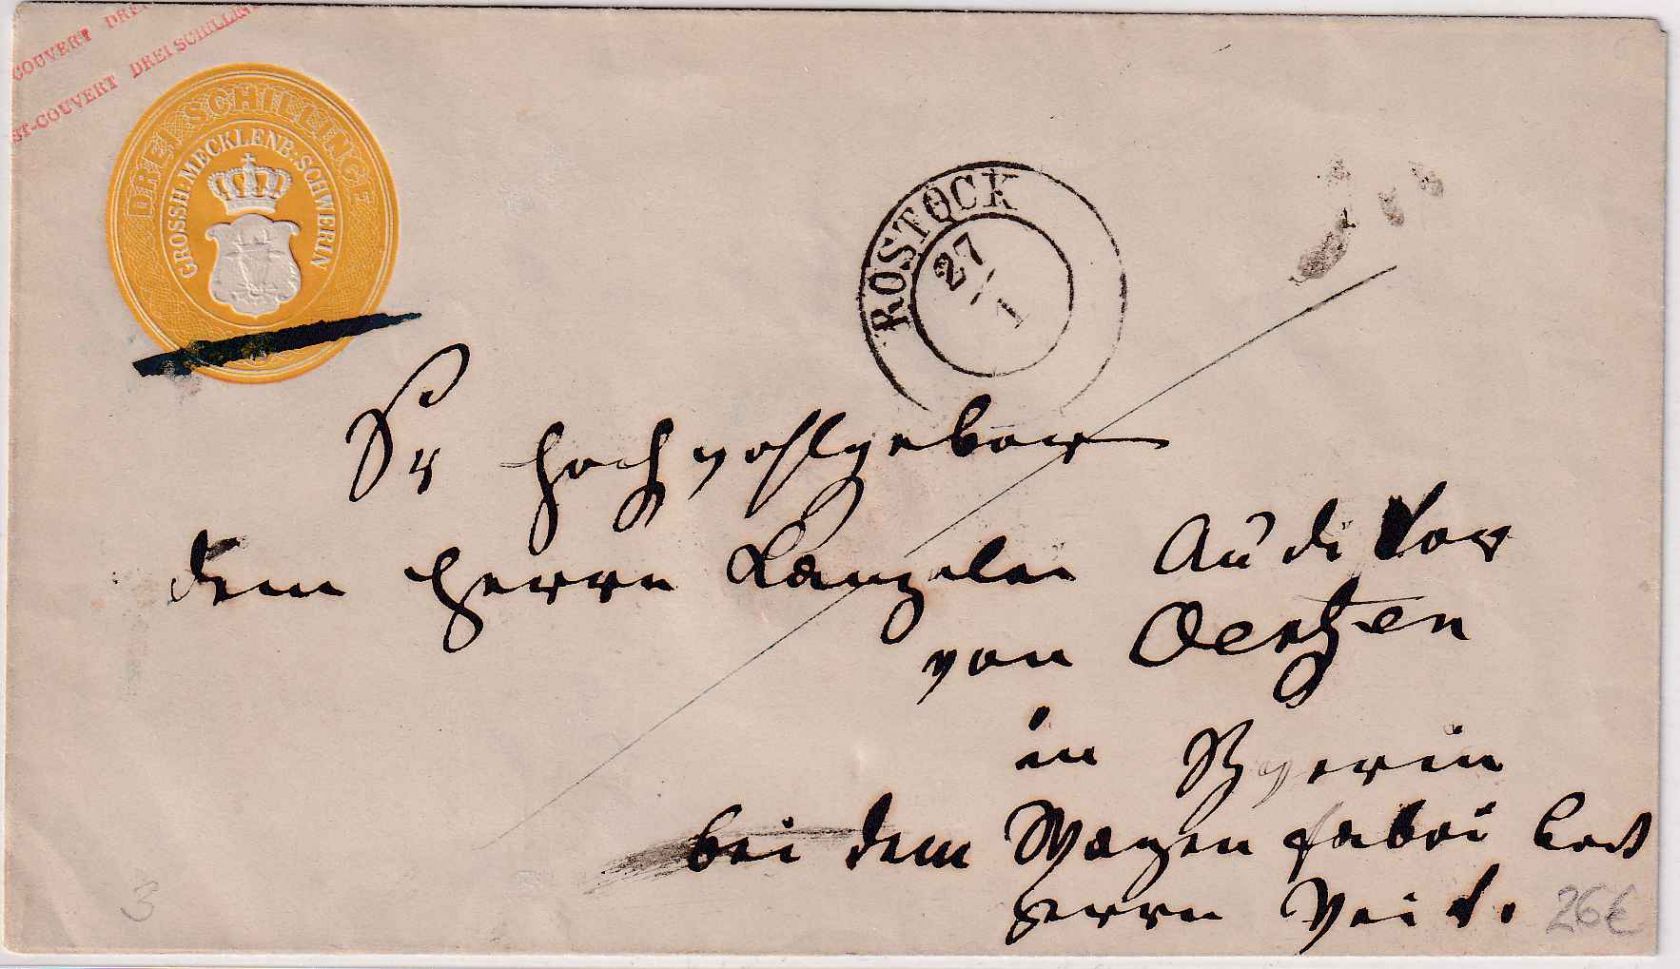 COUVERT DREI
ST-COUVERT DREI SCHILLING
DREI SCHILLINGE
GROSSH: MECKLENB: SCHWERIN
ROSTOCK
27
1
Sr Hochwohlgeborn
dem Herrn Kanzelei Auditor
von Oertzen
in Schwerin
bei dem Wagenfabrikant
Herrn Veit.
3
26€